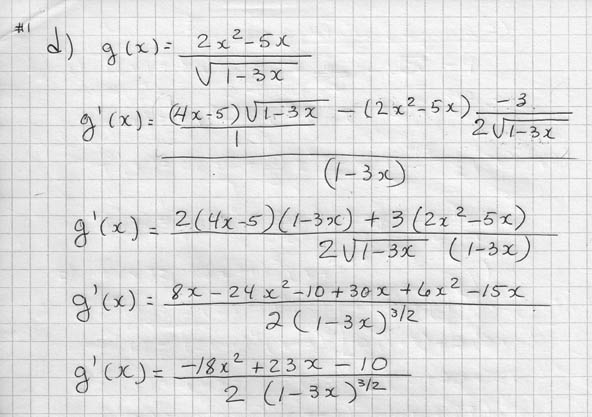 #1
d) g(x) = (2x² - 5x) / √(1-3x)
g'(x) = ((4x-5)√(1-3x) / 1 - (2x² - 5x) (-3 / (2√(1-3x)))) / (1-3x)
g'(x) = (2(4x-5)(1-3x) + 3(2x² - 5x)) / (2√(1-3x) (1-3x))
g'(x) = (8x - 24x² - 10 + 30x + 6x² - 15x) / (2(1-3x)^(3/2))
g'(x) = (-18x² + 23x - 10) / (2 (1-3x)^(3/2))